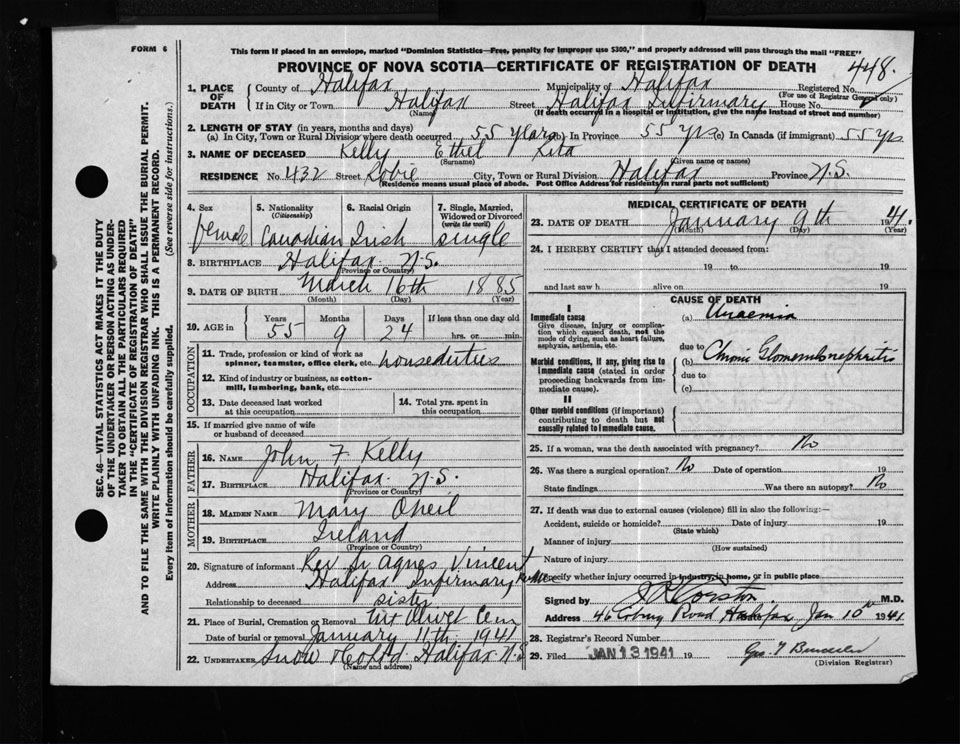 FORM 6
This form if placed in an envelope, marked "Dominion Statistics—Free, penalty for improper use $300," and properly addressed will pass through the mail "FREE"
PROVINCE OF NOVA SCOTIA—CERTIFICATE OF REGISTRATION OF DEATH
448.
SEC. 46—VITAL STATISTICS ACT MAKES IT THE DUTY
OF THE UNDERTAKER OR PERSON ACTING AS UNDER-
TAKER TO OBTAIN ALL THE PARTICULARS REQUIRED
IN THE "CERTIFICATE OF REGISTRATION OF DEATH"
AND TO FILE THE SAME WITH THE DIVISION REGISTRAR WHO SHALL ISSUE THE BURIAL PERMIT.
WRITE PLAINLY WITH UNFADING INK. THIS IS A PERMANENT RECORD.
Every item of information should be carefully supplied. (See reverse side for instructions.)
1. PLACE OF DEATH
County of Halifax Municipality of Halifax Registered No.
(For use of Registrar General only)
If in City or Town Halifax Street Halifax Infirmary House No.
(Name) (If death occurred in a hospital or institution, give the name instead of street and number)
2. LENGTH OF STAY (in years, months and days)
(a) In City, Town or Rural Division where death occurred 55 years (b) In Province 55 yrs (c) In Canada (if immigrant) 55 yrs
3. NAME OF DECEASED Kelly Ethel Rita
(Surname) (Given name or names)
RESIDENCE No. 432 Street Robie City, Town or Rural Division Halifax Province N.S.
(Residence means usual place of abode. Post Office Address for residents in rural parts not sufficient)
4. Sex female
5. Nationality (Citizenship) Canadian
6. Racial Origin Irish
7. Single, Married, Widowed or Divorced (write the word) single
8. BIRTHPLACE Halifax N.S.
(Province or Country)
9. DATE OF BIRTH March 16th 1885
(Month) (Day) (Year)
10. AGE in Years 55 Months 9 Days 24 If less than one day old hrs. or min.
OCCUPATION
11. Trade, profession or kind of work as spinner, teamster, office clerk, etc. houseduties
12. Kind of industry or business, as cotton-mill, lumbering, bank, etc.
13. Date deceased last worked at this occupation
14. Total yrs. spent in this occupation
15. If married give name of wife or husband of deceased
FATHER
16. NAME John F Kelly
17. BIRTHPLACE Halifax N.S.
(Province or Country)
MOTHER
18. MAIDEN NAME Mary Oneil
19. BIRTHPLACE Ireland
(Province or Country)
20. Signature of informant Rev Sr Agnes Vincent
Address Halifax Infirmary
Relationship to deceased sister
21. Place of Burial, Cremation or Removal Mt Olivet Cem
Date of burial or removal January 11th 1941
22. UNDERTAKER Snow & Co Ltd. Halifax N.S
(Name and address)
MEDICAL CERTIFICATE OF DEATH
23. DATE OF DEATH January 9th 1941.
(Month) (Day) (Year)
24. I HEREBY CERTIFY that I attended deceased from:
19 to 19
and last saw h alive on 19
CAUSE OF DEATH
I
Immediate cause
Give disease, injury or complication which caused death, not the mode of dying, such as heart failure, asphyxia, asthenia, etc.
(a) Anaemia
due to
Morbid conditions, if any, giving rise to immediate cause (stated in order proceeding backwards from immediate cause).
(b) Chronic Glomerulonephritis
due to
(c)
II
Other morbid conditions (if important) contributing to death but not causally related to immediate cause.
25. If a woman, was the death associated with pregnancy? No
26. Was there a surgical operation? No Date of operation 19
State findings Was there an autopsy? No
27. If death was due to external causes (violence) fill in also the following:—
Accident, suicide or homicide? Date of injury 19
(State which)
Manner of injury
(How sustained)
Nature of injury
Specify whether injury occurred in industry, in home, or in public place
Signed by M.D.
Address 46 Coburg Road Halifax Jan 10th 1941
28. Registrar's Record Number
29. Filed JAN 13 1941 19
(Division Registrar)